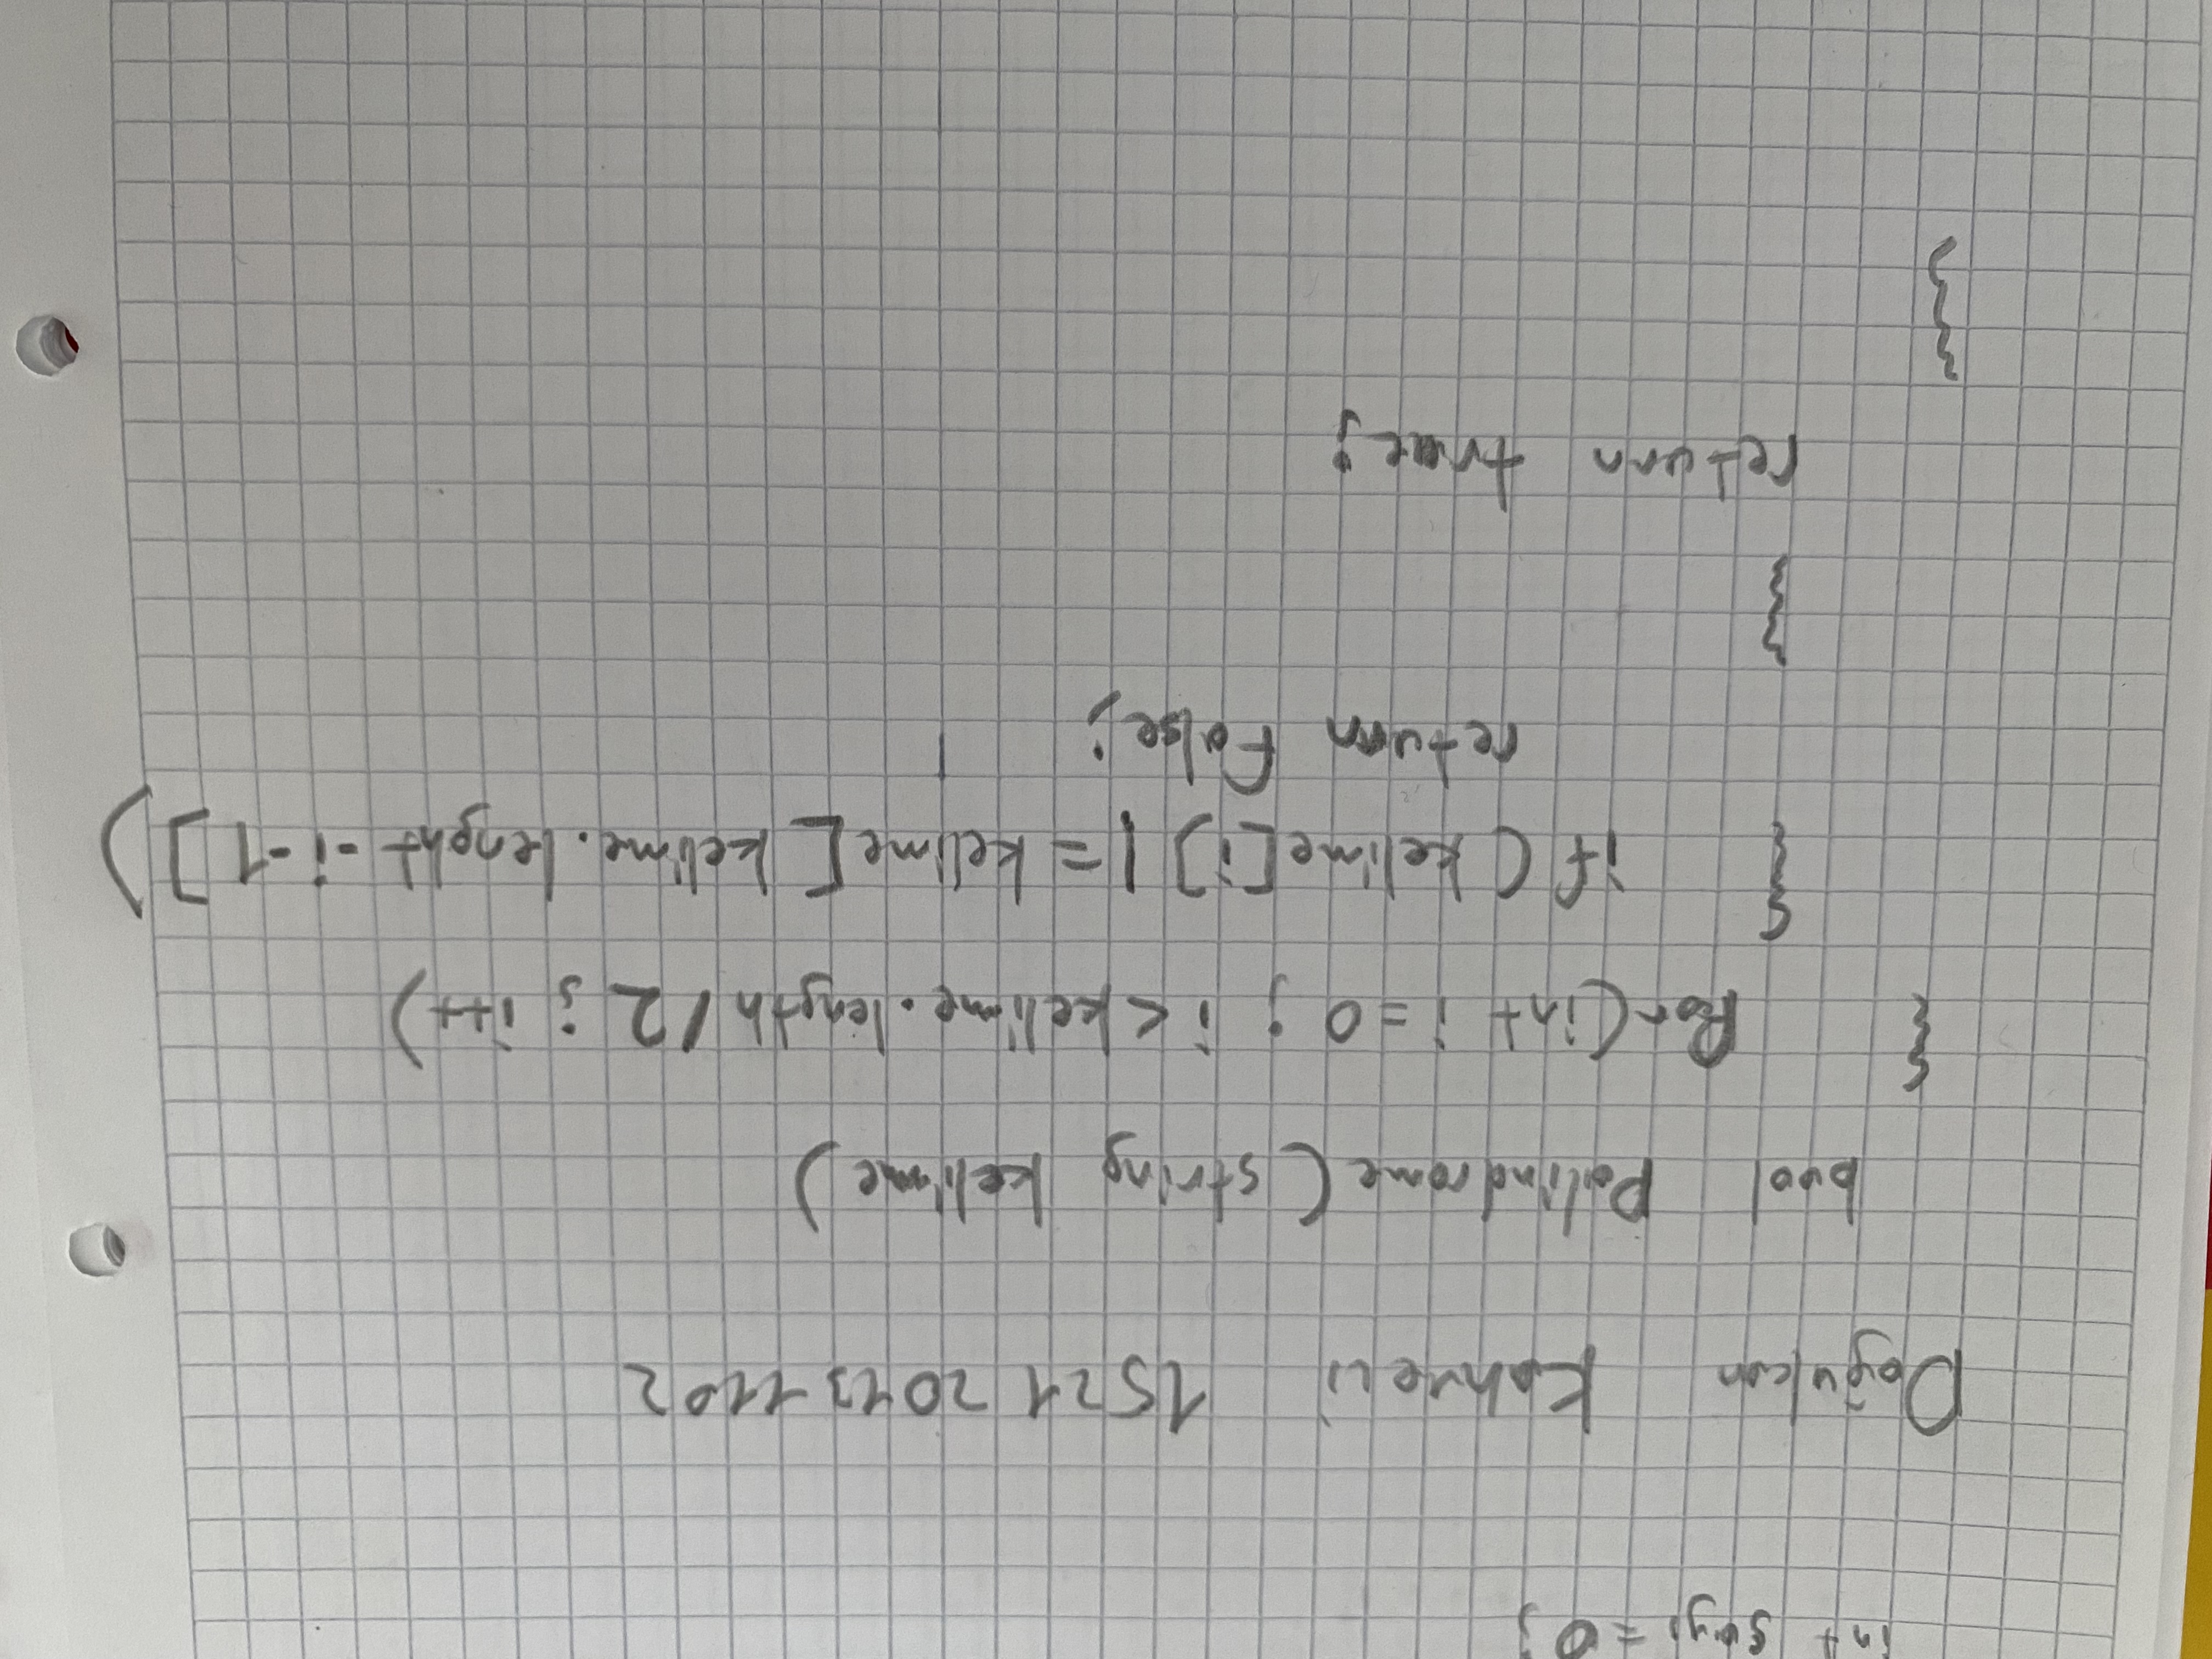 int sayı = 0;
Doğukan Kahveci 152120131102
bool Palindrome(string kelime)
{
for(int i=0; i<kelime.length/2; i++)
{
if(kelime[i] != kelime[kelime.lenght-i-1])
return false;
}
return true;
}